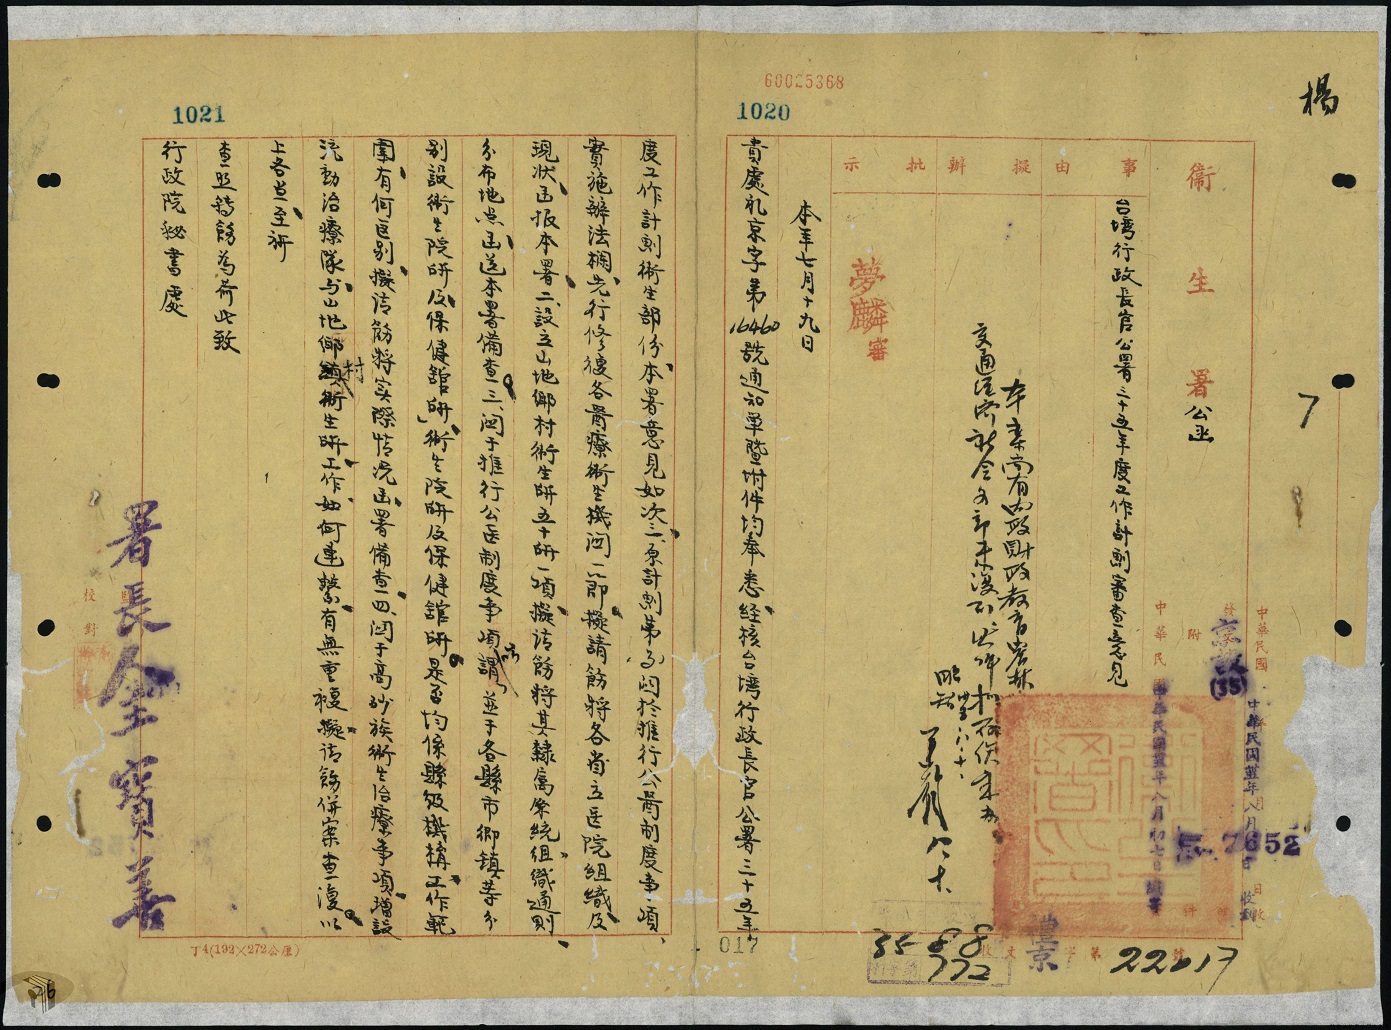 60025368
1020
楊
衛生署公函
7
事由
擬辦
批示
台灣行政長官公署三十五年度工作計劃審查意見
本案尚有內政財政教育農林
交通
夢麟審
本年七月十九日
貴處禮京字第16460號通知單暨附件均奉悉經核台灣行政長官公署三十五年
中華民國
發
附
件
京
(35)
7652
中華民國卅五年八月
收到
中華民國卅五年八月初七日
收文
字第
號
禮京
22017
35 8 8
772
017
1021
度工作計劃衛生部份本署意見如次一、原計劃第 關於推行公醫制度事項
實施辦法欄先行修復各醫療衛生機關一節擬請飭將各省立醫院組織及
現狀函報本署二、設立山地鄉村衛生所五十所一項擬請飭將其隸屬系統組織通則
分布地点函送本署備查三、関于推行公医制度事項所謂並于各縣市鄉鎮等分
別設衛生院所及保健館所衛生院所及保健館所是否均係縣級機構工作範
圍有何区別擬請飭將实際情况函署備查四、関于高砂族衛生治療事項增設
流動治療隊与山地鄉村衛生所工作如何連繫有無重複擬請飭併案查復以
上各点至祈
查照轉飭為荷此致
行政院秘書處
署長金寶善
校對
監
丁4(192×272公厘)
76